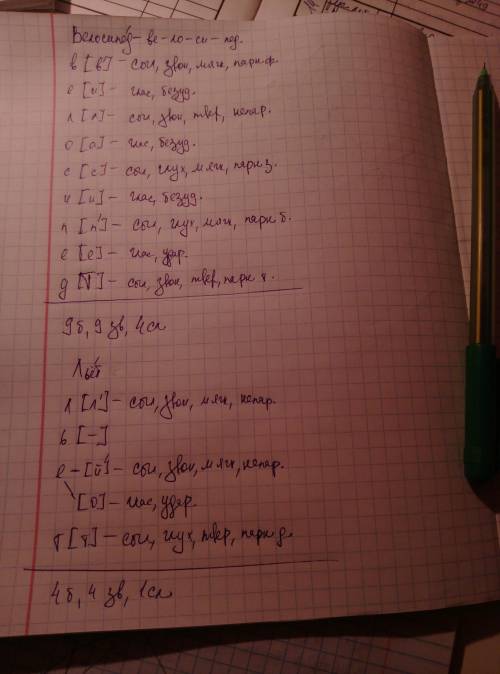 Велосипед – ве-ло-си-пед.
в [в'] – согл, звон, мягк, парн. ф.
е [и] – глас, безуд.
л [л] – согл, звон, твер, непар.
о [а] – глас, безуд.
с [с] – согл, глух, мягк, парн з.
и [и] – глас, безуд.
п [п'] – согл, глух, мягк, парн б.
е [е] – глас, удар.
д [т] – согл, звон, твер, парн т.
9 б, 9 зв, 4 сл
Льёт
л [л'] – согл, звон, мягк, непар.
ь [–]
е – [й'] – согл, звон, мягк, непар.
[о] – глас, удар.
т [т] – согл, глух, твер, парн д.
4 б, 4 зв, 1 сл